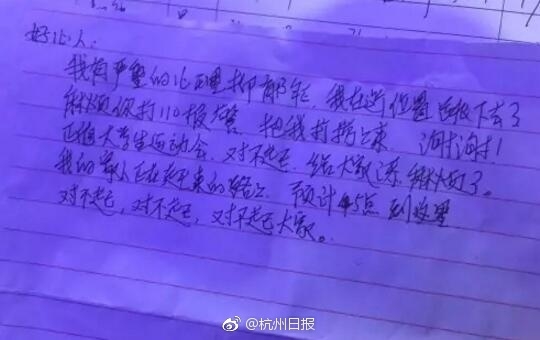 好心人：
我有严重的心理抑郁症，我在这位置跳下去了
麻烦你打110报警，把我打捞上来，谢谢谢谢！
正值大学生运动会，对不起，给大家添麻烦了。
我的家人正在赶来的路上，预计4、5点到这里
对不起，对不起，对不起大家。
@杭州日报